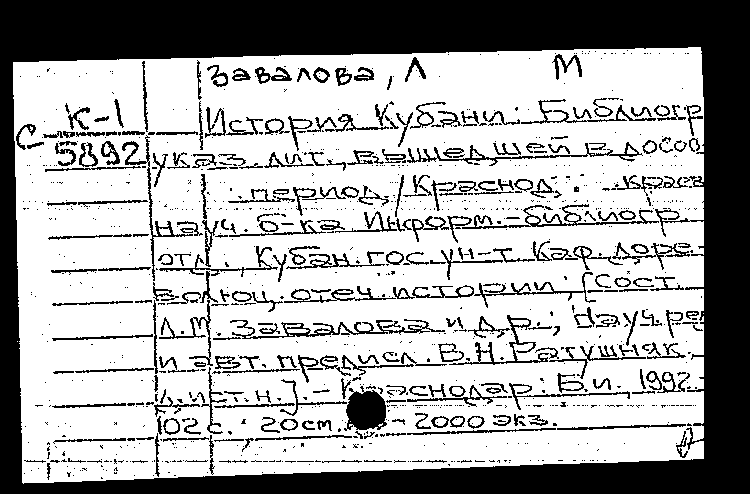 Завалова, Л М
К-1 История Кубани: Библиогр
С- 5892 указ. лит., вышедшей в досов
период / Краснод. краев
науч. б-ка Информ.-библиогр.
отд., Кубан. гос. ун-т Каф. доре-
волюц. отеч. истории; [Сост.
Л.М. Завалова и др.; Науч. ре
и авт. предисл. В.Н. Ратушняк,
д.ист.н.]. - Краснодар: Б.и., 1992.-
102 с.; 20 см. - 2000 экз.